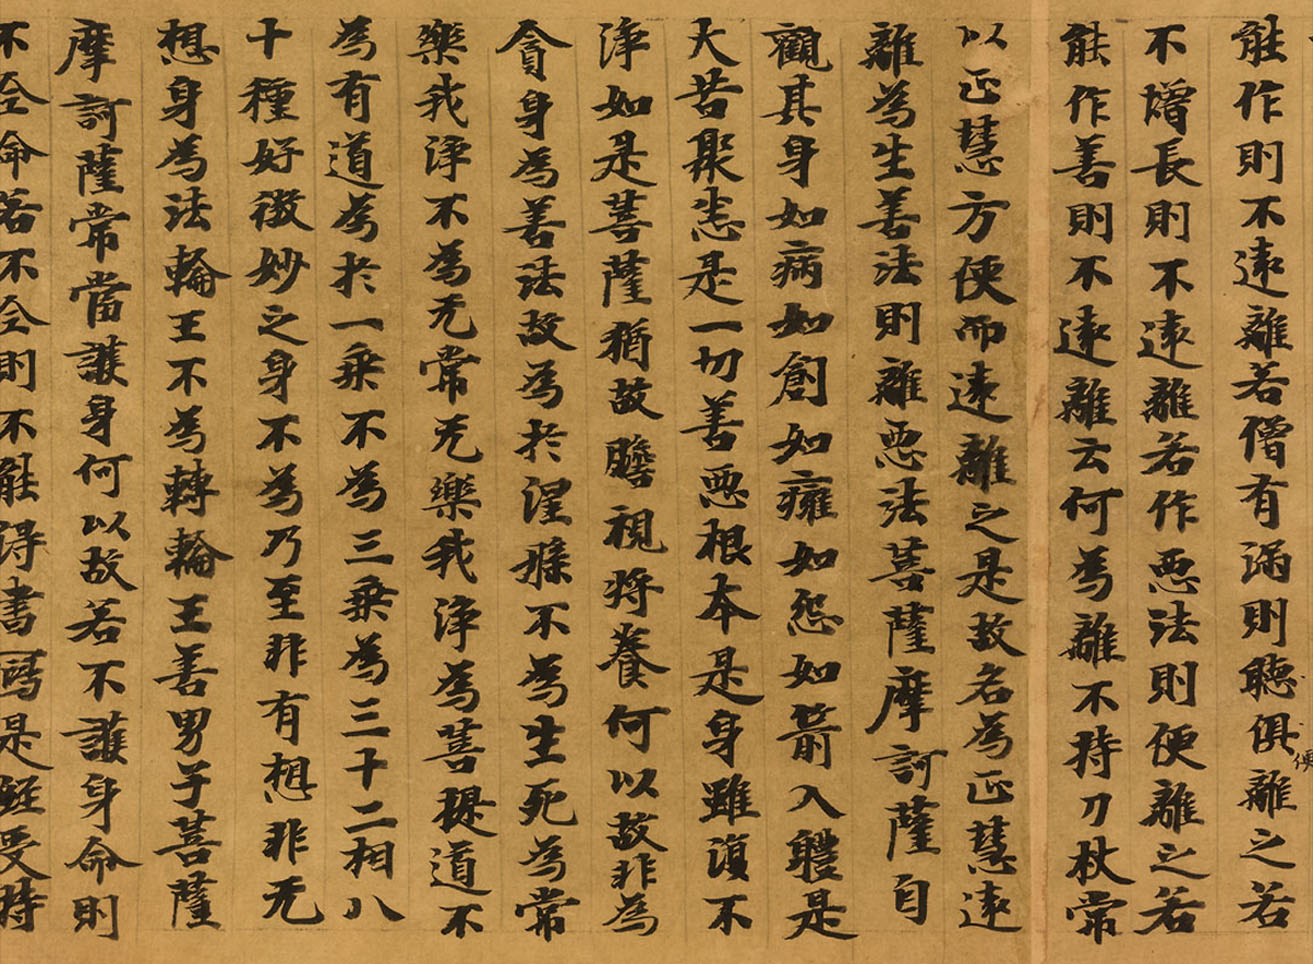 能作則不遠離若僧有漏則聽俱離之若
不增長則不遠離若作惡法則便離之若
能作善則不遠離云何為離不持刀杖常
以正慧方便而遠離之是故名為正慧遠
離為生善法則離惡法菩薩摩訶薩自
觀其身如病如創如癰如怨如箭入體是
大苦聚悉是一切善惡根本是身雖復不
淨如是菩薩猶故瞻視將養何以故非為
貪身為善法故為於涅槃不為生死為常
樂我淨不為无常无樂我淨為菩提道不
為有道為於一乘不為三乘為三十二相八
十種好微妙之身不為乃至非有想非无
想身為法輪王不為轉輪王善男子菩薩
摩訶薩常當護身何以故若不護身命則
不全命若不全則不能得書寫是經受持